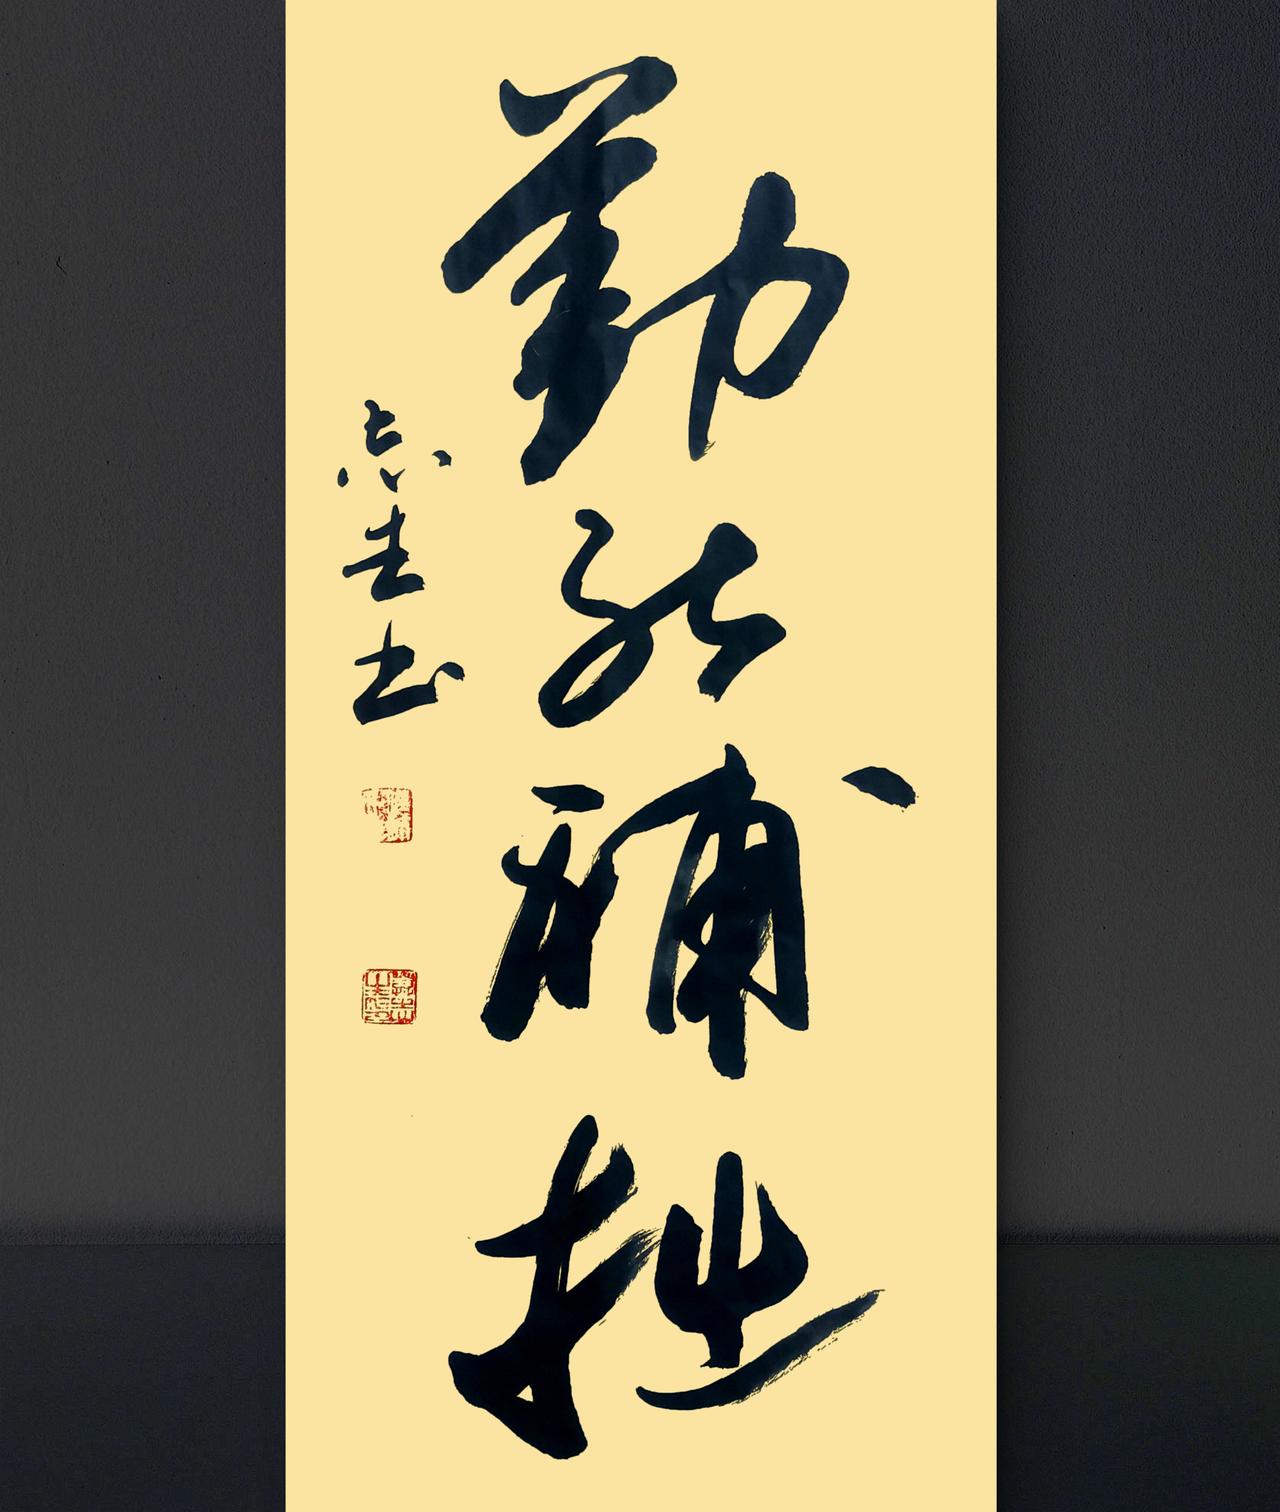 勤能補拙
志生书